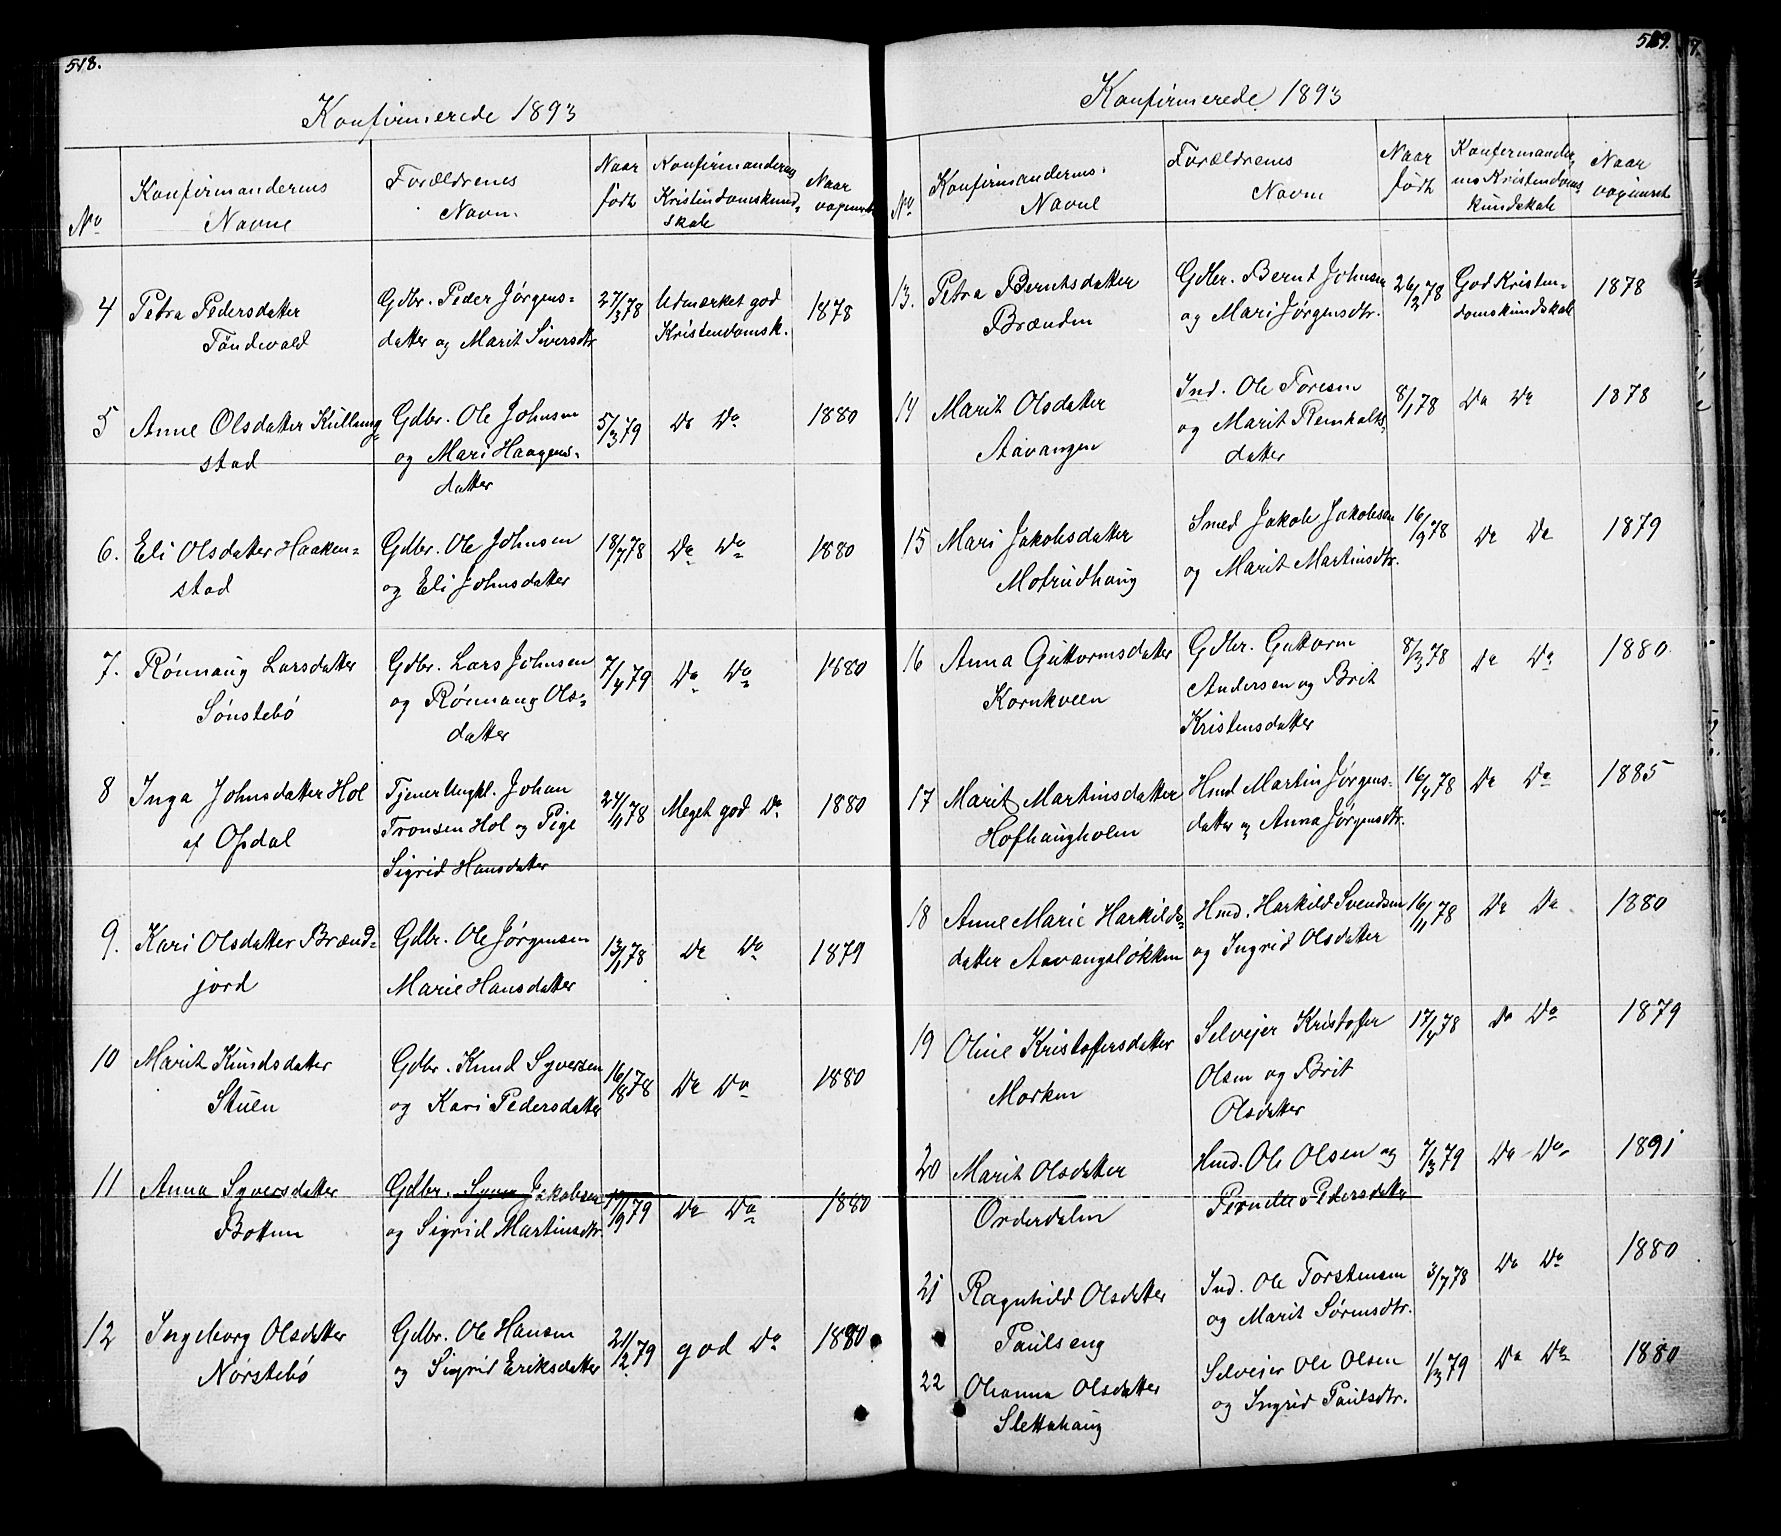 518.
Konfirmerede 1893
No
Konfirmandernes
Navne
Forældrenes
Navn.
Naar
født
Konfirmandernes
Kristendomskund-
skab
Naar
vaccineret
4
Petra Pedersdatter
Töndevold
Gdbr. Peder Jørgens-
datter og Marit Siversdtr
27/3 78
Udmærket god
Kristendomsk.
1878
5
Anne Olsdatter Kullung-
stad
Gdbr. Ole Johnsen
og Mari Haagens-
datter
5/3 79
Do Do
1880
6.
Eli Olsdatter Haaken-
stad
Gdbr. Ole Johnsen
og Eli Johnsdatter
18/7 78
Do Do
1880
7.
Rönnaug Larsdatter
Sønstebö
Gdbr. Lars Johnsen
og Rönnaug Ols-
datter
7/4 79
Do Do
1880
8
Inga Johnsdatter Hol
af Opdal
Tjener Ungkl. Johan
Tronsen Hol og Pige
Sigrid Hansdatter
24/11 78
Meget god Do
1880
9.
Kari Olsdatter Brænd-
jord
Gdbr. Ole Jørgensen
Marie Hansdatter
13/1 78
Do Do
1879
10
Marit Knudsdatter
Stuen
Gdbr. Knud Syversen
og Kari Pedersdatter
16/8 78
Do Do
1880
11
Anna Syversdatter
Botten
Gdbr. Syver Jakobsen
og Sigrid Martinsdtr.
79
Do Do
1880
12
Ingeborg Olsdatter
Nørstebö
Gdbr. Ole Hansen
og Sigrid Eriksdatter
21/2 79
god Do
1880
519.
Konfirmerede 1893
No
Konfirmandernes
Navne
Forældrenes
Navne
Naar
født
Konfirmander-
nes Kristendoms
kundskab
Naar
vaccineret
13.
Petra Berntsdatter
Brænden
Gdbr. Bernt Johnsen
og Mari Jørgensdtr.
26/2 78
God Kristen-
domskundskab
1878
14
Marit Olsdatter
Aavangen
Ind. Ole Toresen
og Marit Remholts-
datter
8/1 78
Do Do
1878
15
Mari Jakobsdatter
Motrudhaug
Smed Jakob Jakobsen
og Marit Martinsdtr.
16/9 78
Do Do
1879
16
Anna Guttormsdatter
Kornkveen
Gdbr. Guttorm
Andersen og Brit
Kristensdatter
8/3 78
Do Do
1880
17
Marit Martinsdatter
Hofhaugholen
Hmd Martin Jørgens-
datter og Anna Jørgensdtr.
16/4 78
Do Do
1885
18
Anne Marie Harkilds-
datter Aavangsløkken
Hmd. Harkild Svendsen
og Ingrid Olsdatter
16/11 78
Do Do
1880
19
Oline Kristoffersdatter
Morken
Selvejer Kristoffer
Olsen og Brit
Olsdatter
17/4 78
Do Do
1879
20
Marit Olsdatter
Orderdalen
Hmd. Ole Olsen og
Pernelle Pedersdatter
7/3 79
Do Do
1891
21
Ragnhild Olsdatter
Paulseng
Ind. Ole Torstensen
og Marit Sørensdtr.
3/7 78
Do Do
1880
22
Oleanna Olsdatter
Slettahaug
Selvejer Ole Olsen
og Ingrid Paulsdtr.
1/3 79
Do Do
1880